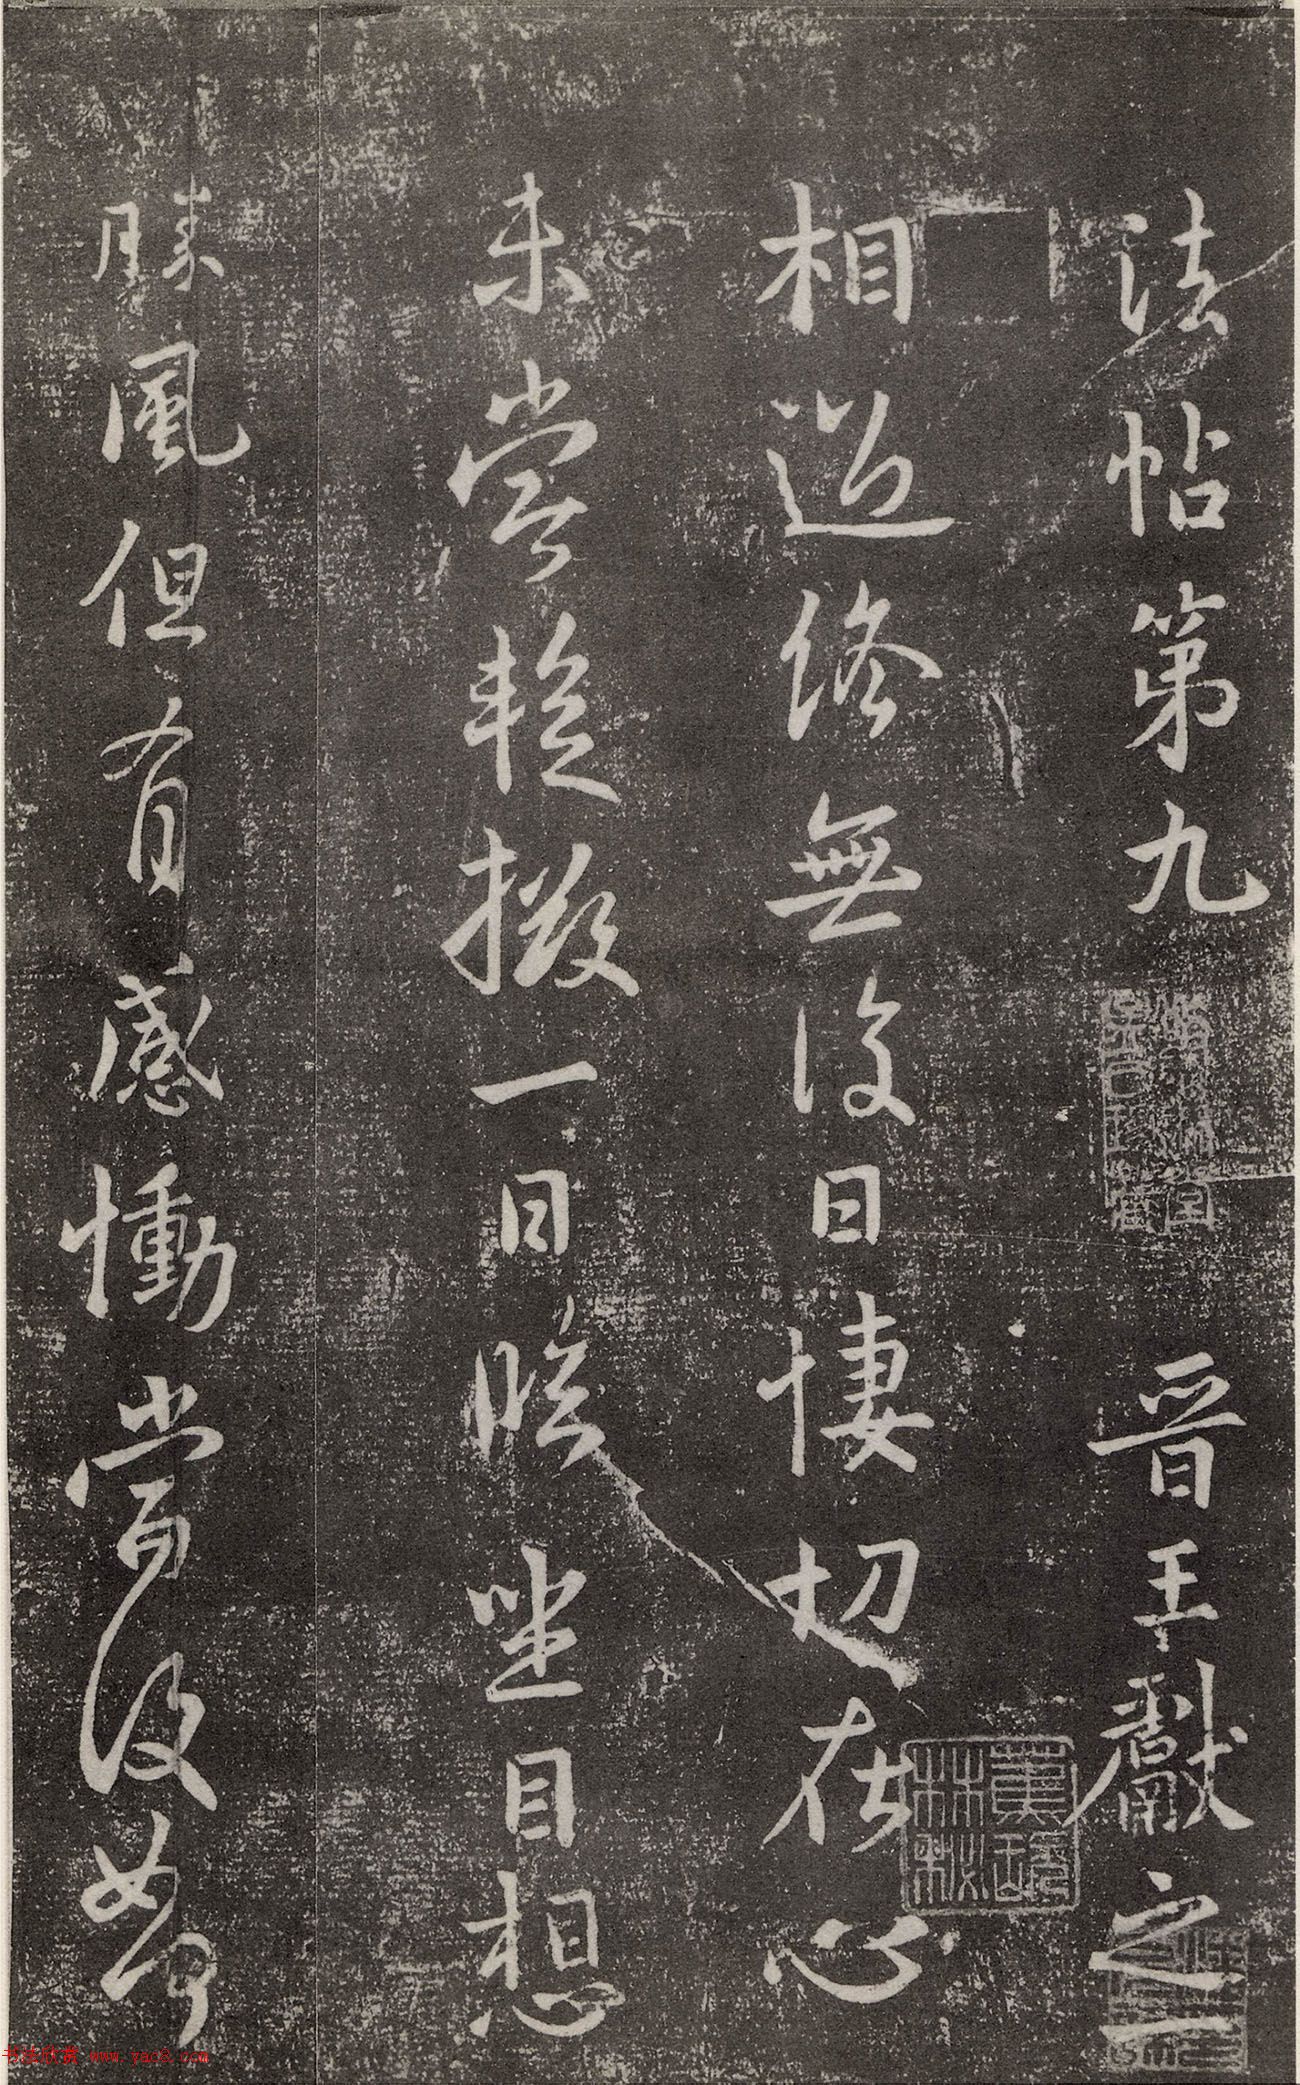 法帖第九 晉王獻之一
相過終無復日悽切在心
未嘗暫掇一日臨坐目想
勝風但有感慟當復如何
书法欣赏 www.yac8.com